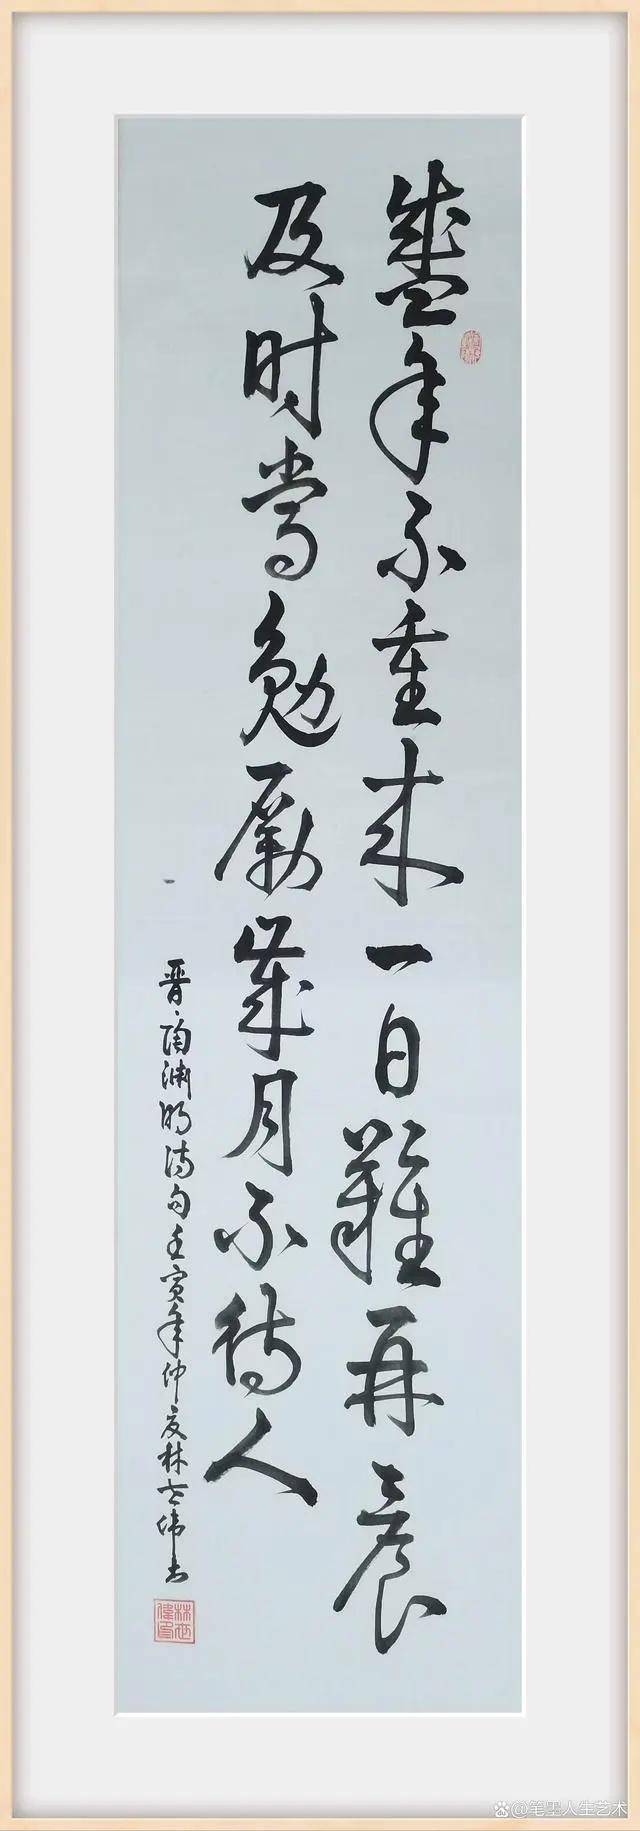 盛年不重来一日难再晨
及时当勉励岁月不待人
晋·陶渊明诗句壬寅年仲夏林世伟书
林世伟印
@笔墨人生艺术